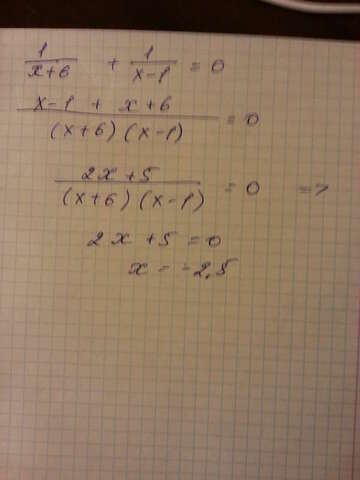 1/(x+6) + 1/(x-1) = 0
(x-1 + x+6)/((x+6)(x-1)) = 0
(2x+5)/((x+6)(x-1)) = 0 =>
2x+5=0
x = -2,5